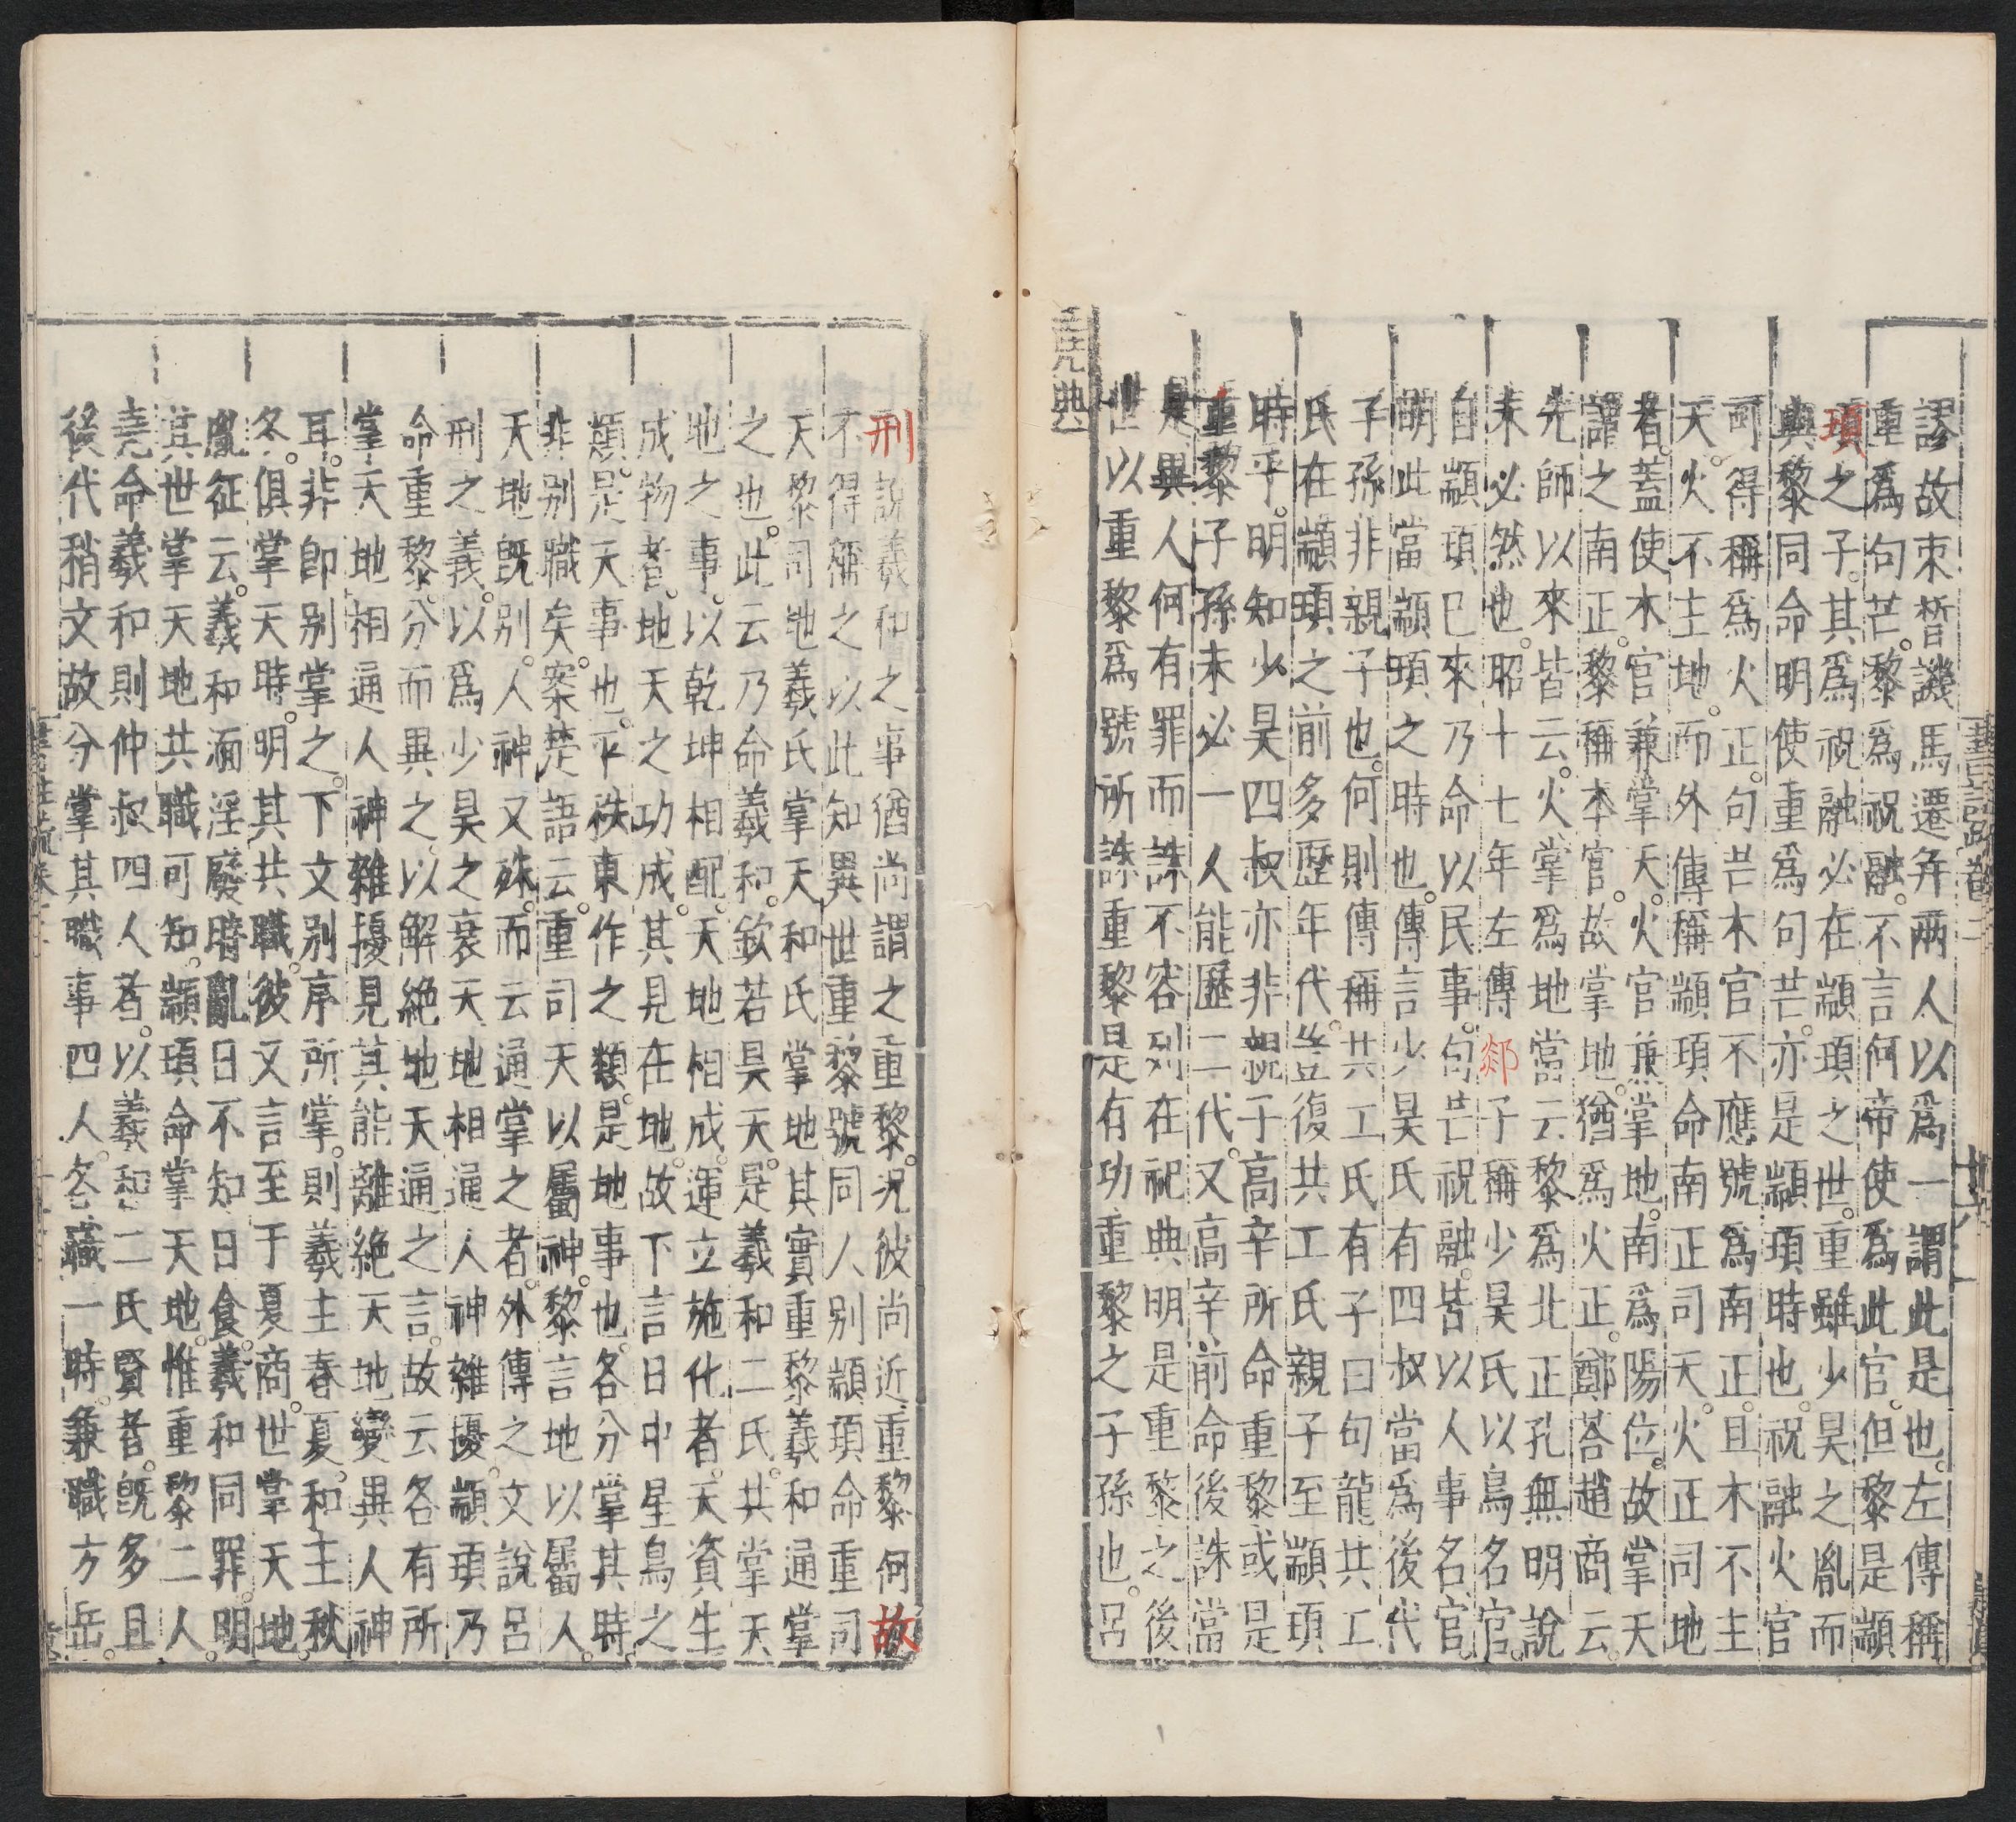 謬故束晳譏馬遷并兩人以爲一謂此是也左傳稱
重爲句芒黎爲祝融不言何帝使爲此官但黎是顓
頊之子其爲祝融必在顓頊之世重雖少昊之胤而
與黎同命明使重爲句芒亦是顓頊時也祝融火官
可得稱爲火正句芒木官不應號爲南正且木不主
天火不主地而外傳稱顓頊命南正司天火正司地
者蓋使木官兼掌天火官兼掌地南爲陽位故掌天
謂之南正黎稱本官故掌地猶爲火正鄭荅趙商云
先師以來皆云火掌爲地當云黎爲北正孔無明說
未必然也昭十七年左傳郯子稱少昊氏以鳥名官
自顓頊已來乃命以民事句芒祝融皆以人事名官
明此當顓頊之時也傳言少昊氏有四叔當爲後代
子孫非親子也何則傳稱共工氏有子曰句龍共工
氏在顓頊之前多歷年代豈復共工氏親子至顓頊
時乎明知少昊四叔亦非親子高辛所命重黎或是
重黎子孫未必一人能歷二代又高辛前命後誅當
是異人何有罪而誅不容列在祀典明是重黎之後
世以重黎爲號所誅重黎是有功重黎之子孫也呂
堯典
刑說羲和之事猶尚謂之重黎況彼尚近重黎何故
不得稱之以此知異世重黎號同人別顓頊命重司
天黎司地羲氏掌天和氏掌地其實重黎羲和通掌
之也此云乃命羲和欽若昊天是羲和二氏共掌天
地之事以乾坤相配天地相成運立施化者天資生
成物者地天之功成其見在地故下言日中星鳥之
類是天事也平秩東作之類是地事也各分掌其時
非別職矣案楚語云重司天以屬神黎言地以屬人
天地既別人神又殊而云通掌之者外傳之文說呂
刑之義以爲少昊之衰天地相通人神雜擾顓頊乃
命重黎分而異之以解絶地天通之言故云各有所
掌天地相通人神雜擾見其能離絶天地變異人神
耳非卽別掌之下文別序所掌則羲主春夏和主秋
冬俱掌天時明其共職彼又言至于夏商世掌天地
胤征云羲和湎淫廢時亂日不知日食羲和同罪明
其世掌天地共職可知顓頊命掌天地惟重黎二人
堯命羲和則仲叔四人者以羲和二氏賢者旣多且
後代稍文故分掌其職事四人各職一時兼職方岳